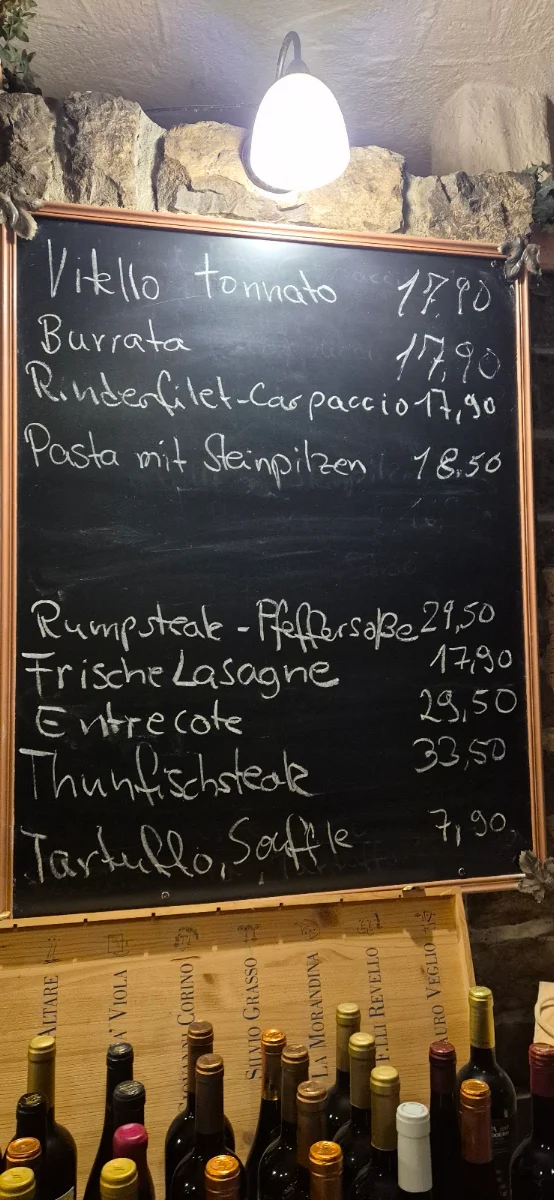 Vitello tonnato 17.90
Burrata 17,90
Rinderfilet-Carpaccio 17,90
Pasta mit Steinpilzen 18.50
Rumpsteak - Pfeffersoße 29,50
Frische Lasagne 17,90
Entrecote 29,50
Thunfischsteak 33,50
Tartuffo, Souffle 7,90
ALTARE
VIOLA
CORINO
SILVIO GRASSO
LA MORANDINA
F.LLI REVELLO
VEGLIO